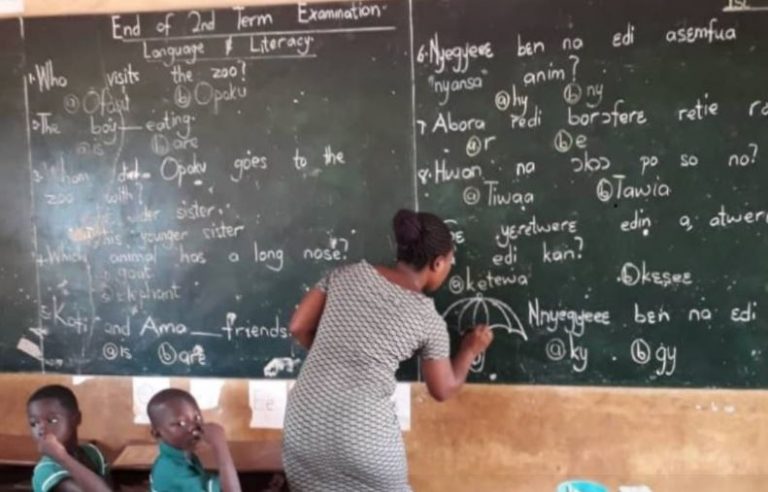 End of 2nd Term Examination.
Language & Literacy.
1. Who visits the zoo?
ⓐ Ofosu ⓑ Opoku
2. The boy eating.
ⓐ is ⓑ are
3. Whom did Opoku goes to the
zoo with?
sister.
his younger sister
4. Which animal has a long nose?
goat
elephant
5. Kofi and Ama ___ friends.
ⓐ is ⓑ are
6. Nyegyeeɛ bɛn na ɛdi asɛmfua
"nyansa" anim?
ⓐ hy ⓑ ny
7. Abora redi borɔfere retie
ⓐ r ⓑ e
8. Hwan na ɔkɔɔ po so no?
ⓐ Tiwaa ⓑ Tawia
yeretwerɛ edin a, atwerɛ
edi kan?
ⓐ ketewa ⓑ kɛseɛ
Nnyegyeeɛ bɛn na ɛdi
ⓐ ky ⓑ gy